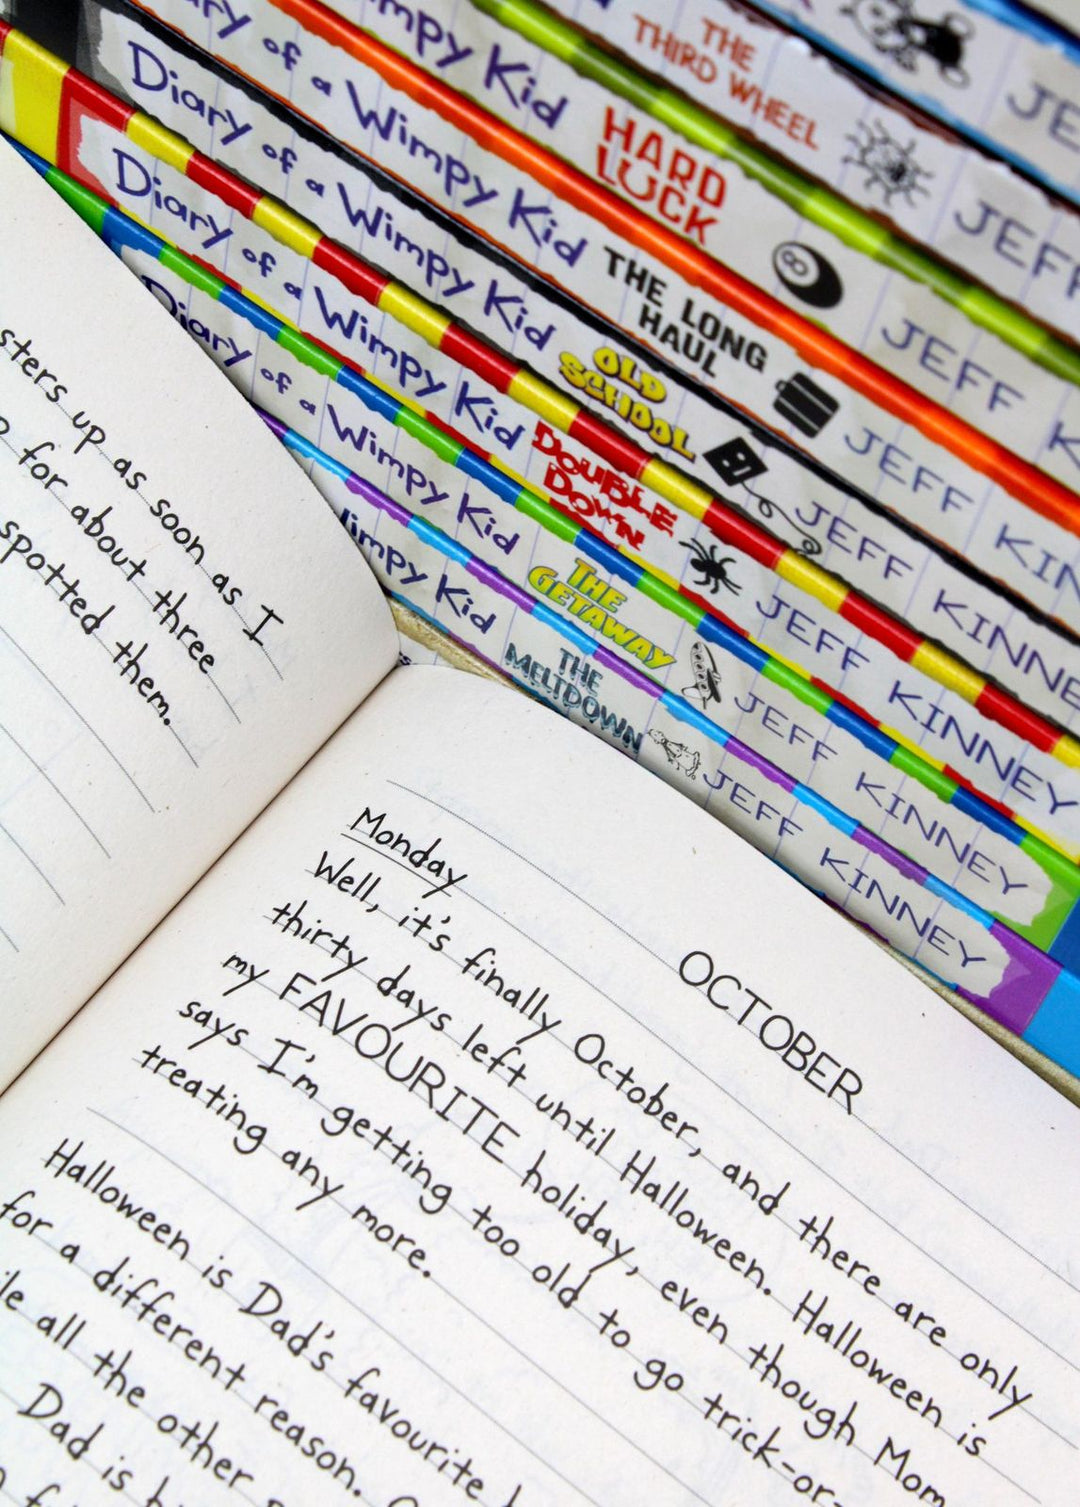 THE
THIRD WHEEL
JEFF
Wimpy Kid
HARD
LUCK
JEFF
Diary of a Wimpy Kid
THE LONG
HAUL
JEFF
Diary of a Wimpy Kid
OLD
SCHOOL
JEFF KINNEY
Diary of a Wimpy Kid
DOUBLE
DOWN
JEFF KINNEY
Diary of a Wimpy Kid
THE
GETAWAY
JEFF KINNEY
Wimpy Kid
THE
MELTDOWN
JEFF KINNEY
up as soon as I
for about three
spotted them.
OCTOBER
Monday
Well, it's finally October, and there are only
thirty days left until Halloween. Halloween is
my FAVOURITE holiday, even though Mom
says I'm getting too old to go trick-or-
treating any more.
Halloween is Dad's favourite
for a different reason.
all the other
Dad is